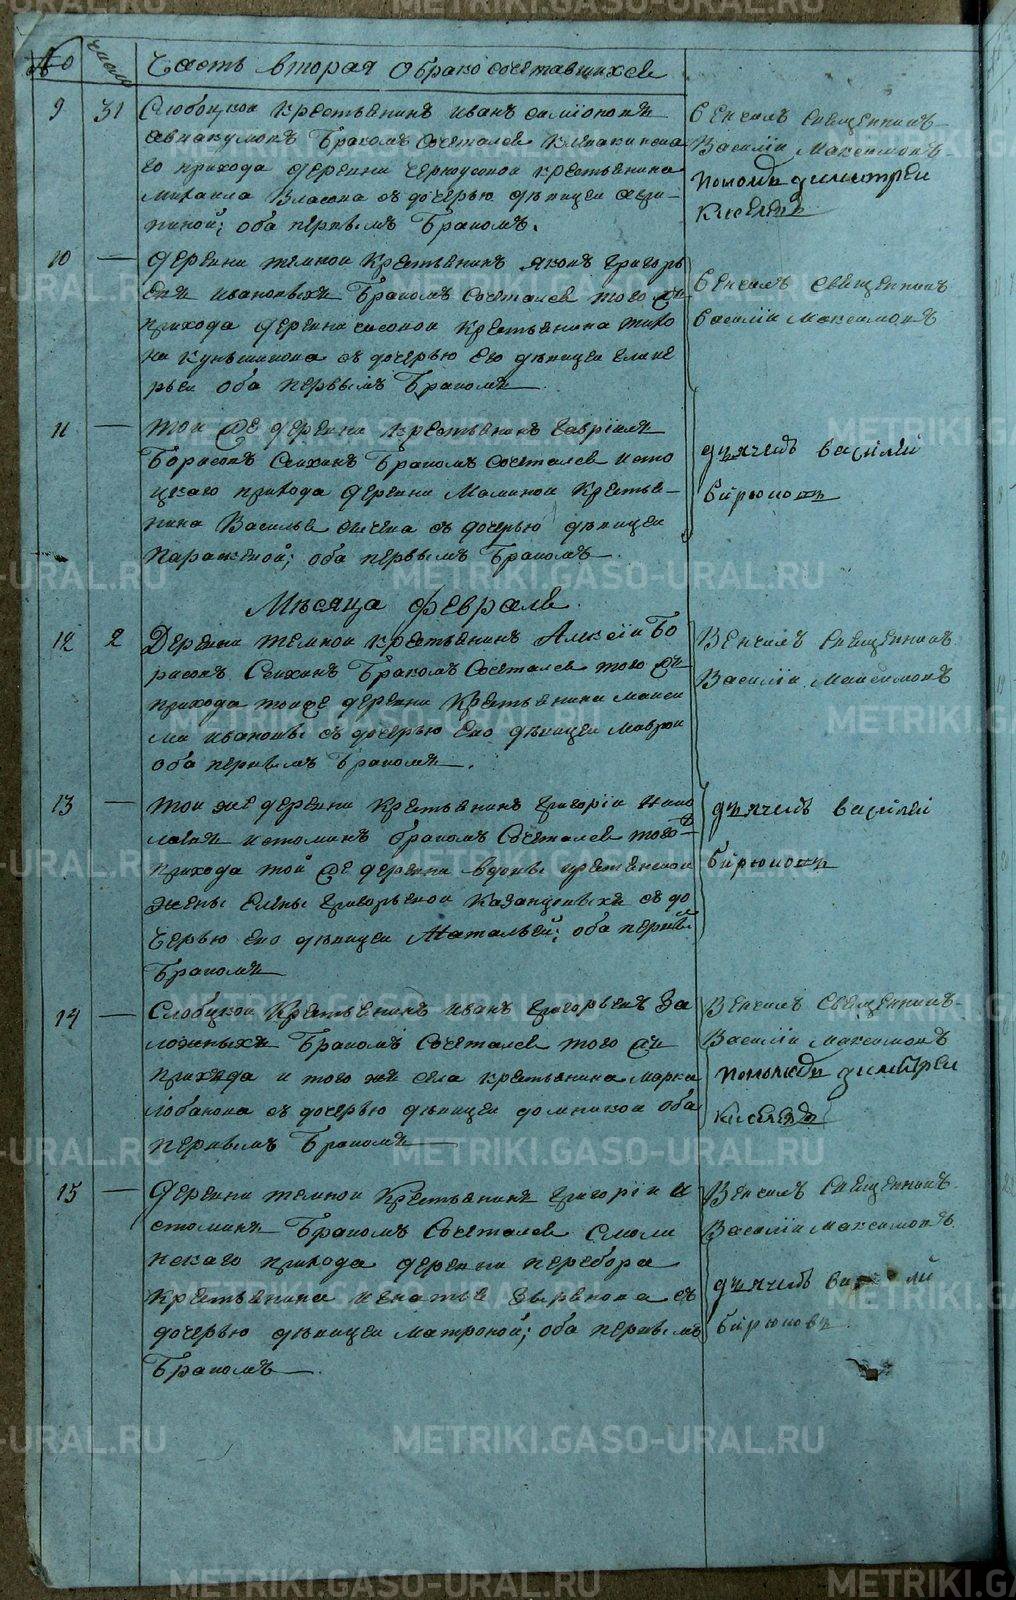 № число Часть вторая о бракосочетавшихся
9 31 Слобоцкои крестьянинъ иванъ симiоновъ
авакумовъ бракомъ сочетался
го прихода деревни крестьянина
михаила Власова съ дочерью девицеи
оба первымъ бракомъ.
Венчалъ священникъ
Василiи Максимовъ
пономарь димитреи
Киселевъ
10 — деревни темнои крестьянинъ яковъ григорь
евъ ивановыхъ бракомъ сочетался того же
прихода деревни сысовои крестьянина
съ дочерью его девицеи глике
рьеи оба первымъ бракомъ
Венчалъ священникъ
василiи Максимовъ
11 — тои же деревни крестьянинъ гаврiилъ
Борисовъ бракомъ сочетался исто
цкаго прихода деревни Маминои крестья-
нина Василья съ дочерью девицеи
параскевой; оба первымъ бракомъ.
дьячекъ василей
бирюковъ
Месяца февраля
12 2 Деревни темнои крестьянинъ Алексiи Бо
рисовъ бракомъ сочетался того же
прихода тоиже деревни крестьянина макси
ма иванова съ дочерью его девицеи маврои
оба первымъ бракомъ.
Венчалъ священникъ
Василiи Максимовъ
13 — тои же деревни крестьянинъ григорiи нико
лаевъ истоминъ бракомъ сочетался того же
прихода той же деревни вдовы крестьянскои
жены елены григорьевои казанцовыхъ съ до
черью его девицеи Натальей; оба первымъ
бракомъ
дьячекъ василей
бирюковъ
14 — Слобоцкои крестьянинъ иванъ григорьевъ за
ложныхъ бракомъ сочетался того же
прихода и того же села крестьянина марка
лобанова съ дочерью девицеи домникои оба
первымъ бракомъ
Венчалъ священникъ
Василiи Максимовъ
пономарь димитреи
Киселевъ
15 — деревни темнои крестьянинъ григорiи и
стоминъ бракомъ сочетался смоли
нскаго прихода деревни перебора
крестьянина игнатья зырянова съ
дочерью девицеи матроной; оба первымъ
бракомъ
Венчалъ священникъ
Василiи Максимовъ.
дьячекъ василей
бирюковъ
METRIKI.GASO-URAL.RU